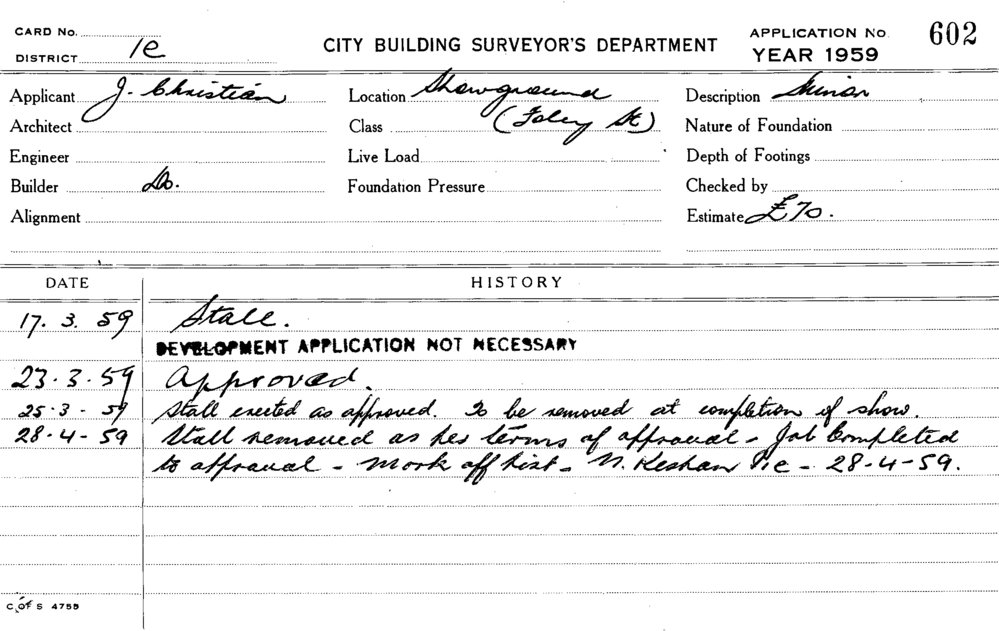 CARD No.
DISTRICT 1e
CITY BUILDING SURVEYOR'S DEPARTMENT
APPLICATION No. 602
YEAR 1959
Applicant J. Christian
Location Showground
Description Minor
Architect
Class (Foley St)
Nature of Foundation
Engineer
Live Load
Depth of Footings
Builder Do.
Foundation Pressure
Checked by
Alignment
Estimate £70.
DATE HISTORY
17. 3. 59 Stall.
DEVELOPMENT APPLICATION NOT NECESSARY
23.3.59 Approved.
25.3-59 Stall erected as approved. To be removed at completion of show.
28-4-59 Stall removed as per terms of approval - Job Completed
to approval - Mark off list - 28-4-59.
C OF S 4755